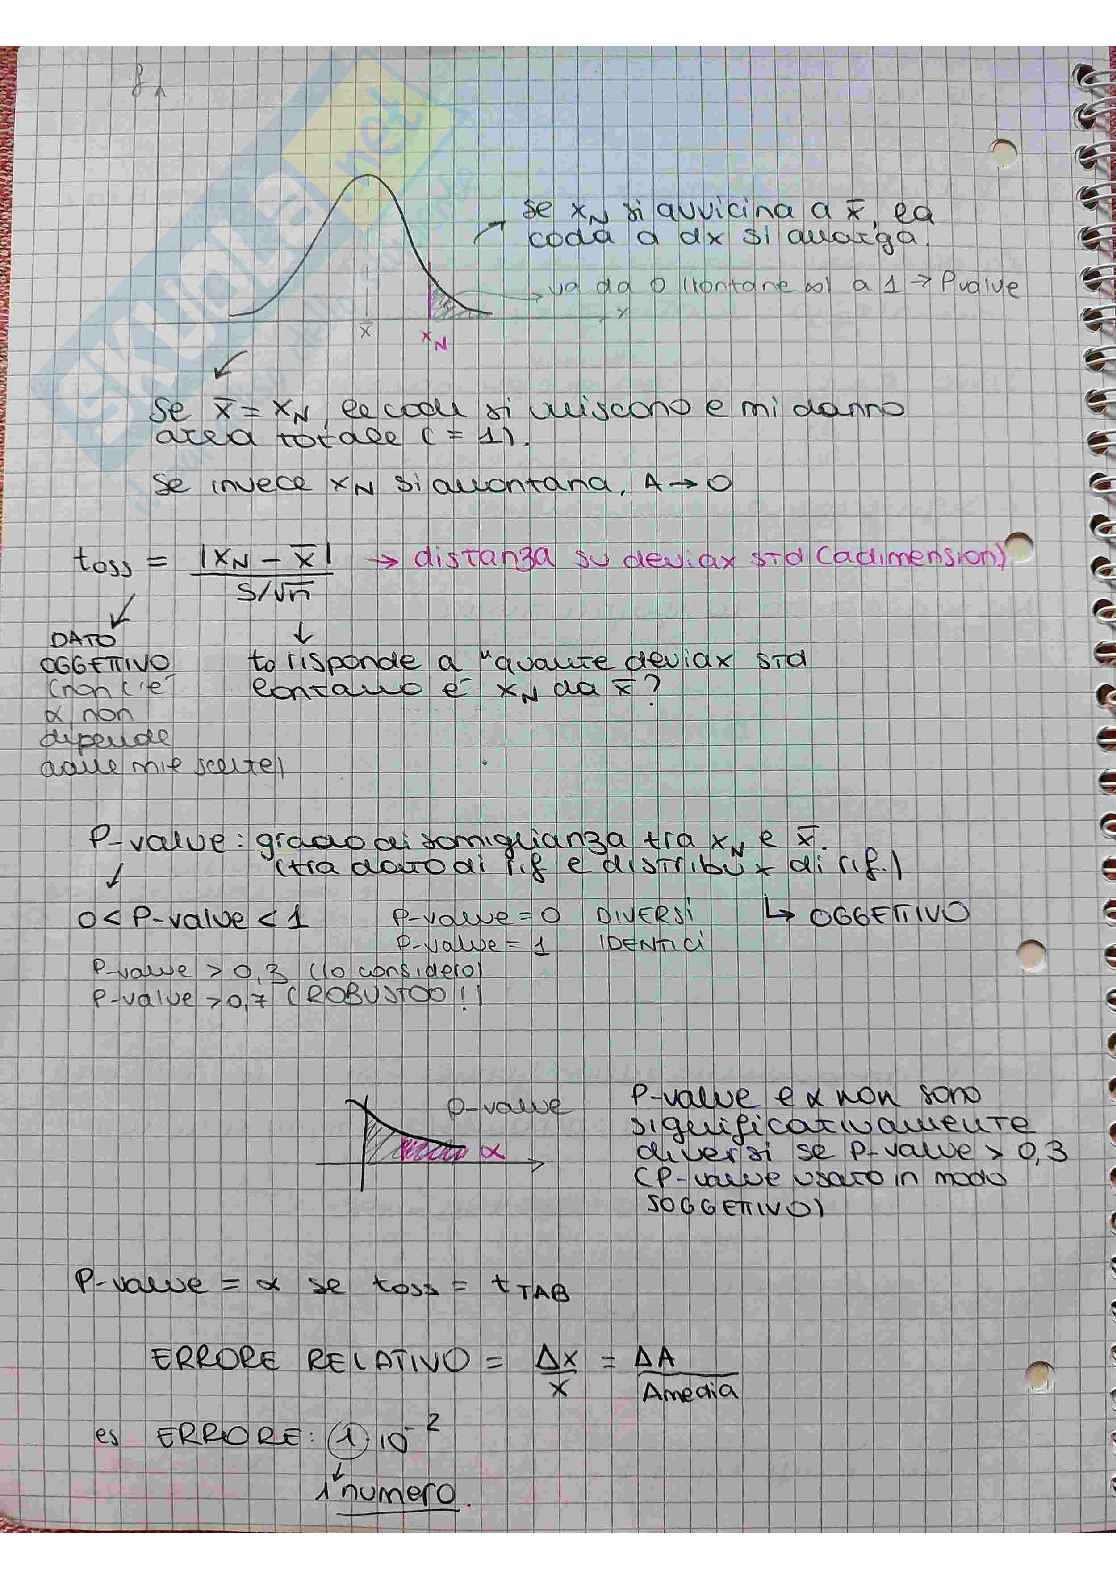 SKUOLA.net
f
se xN si avvicina a x̄, la
coda a dx si allarga.
va da 0 (lontane ∞) a 1 → Pvalue
x̄
xN
x
Se x̄ = xN le code si uniscono e mi danno
area totale (= 1).
Se invece xN si allontana, A → 0
toss = |xN - x̄| / S/√n → distanza su deviaz std (adimension)
DATO
OGGETTIVO
(non c'è
α non
dipende
dalle mie scelte)
to risponde a "quante deviaz std
lontano è xN da x̄?
P-value: grado di somiglianza tra xN e x̄.
(tra dato di rif e distribuz di rif.)
↳ OGGETTIVO
0 < P-value < 1
P-value = 0 DIVERSI
P-value = 1 IDENTICI
P-value > 0,3 (lo considero)
P-value > 0,7 (ROBUSTOO!)
p-value
α
P-value e α non sono
significativamente
diversi se P-value > 0,3
(P-value usato in modo
SOGGETTIVO)
P-value = α se toss = tTAB
ERRORE RELATIVO = Δx/x = ΔA/Amedia
es ERRORE: 1 10⁻²
1 numero.